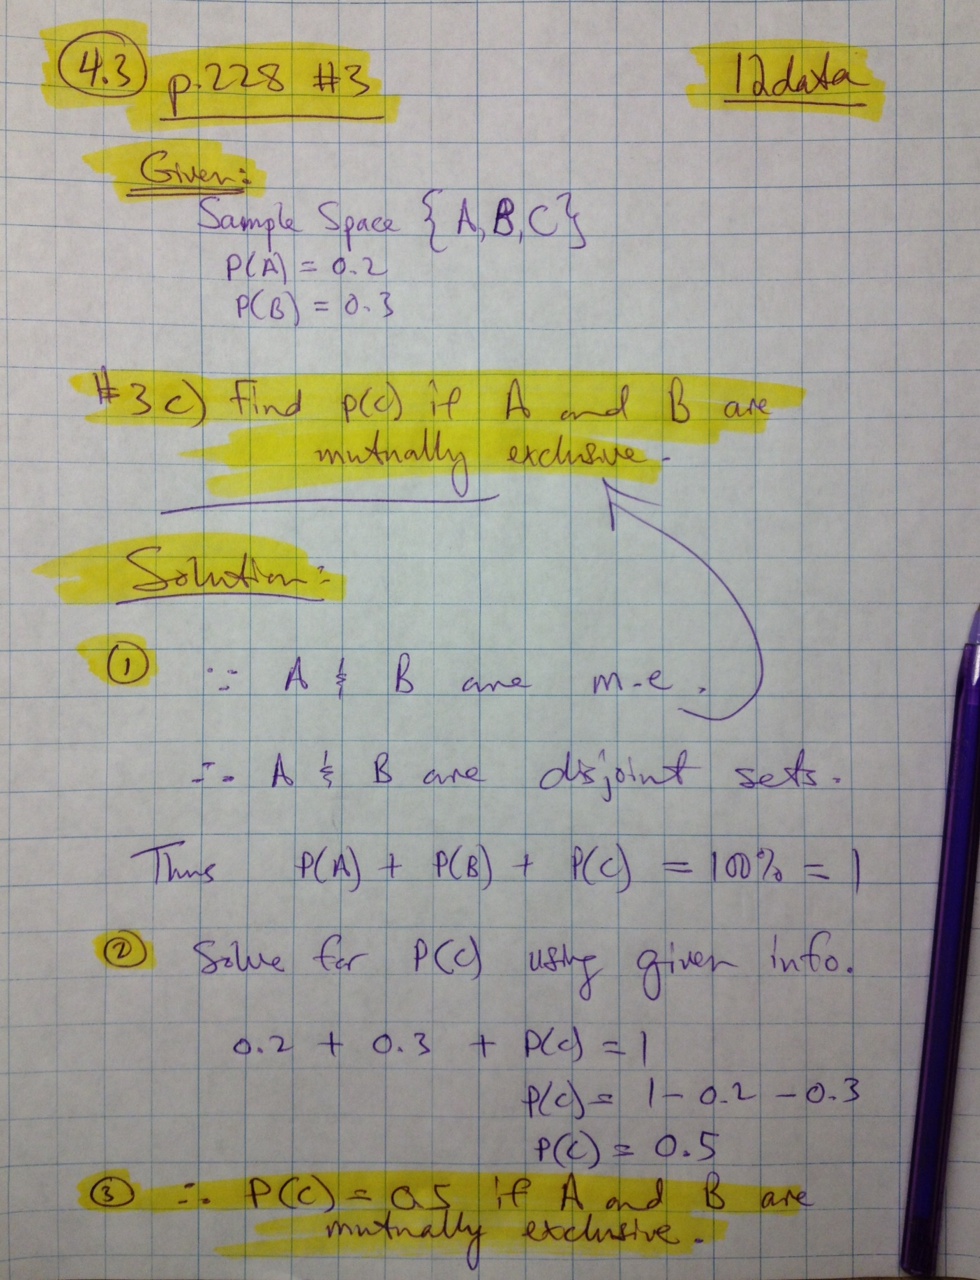 4.3 p.228 #3
12data
Given:
Sample Space {A, B, C}
P(A) = 0.2
P(B) = 0.3
#3 c) Find P(C) if A and B are
mutually exclusive.
Solution:
① ∵ A & B are m.e.
∴ A & B are disjoint sets.
Thus P(A) + P(B) + P(C) = 100% = 1
② Solve for P(C) using given info.
0.2 + 0.3 + P(C) = 1
P(C) = 1 - 0.2 - 0.3
P(C) = 0.5
③ ∴ P(C) = 0.5 if A and B are
mutually exclusive.